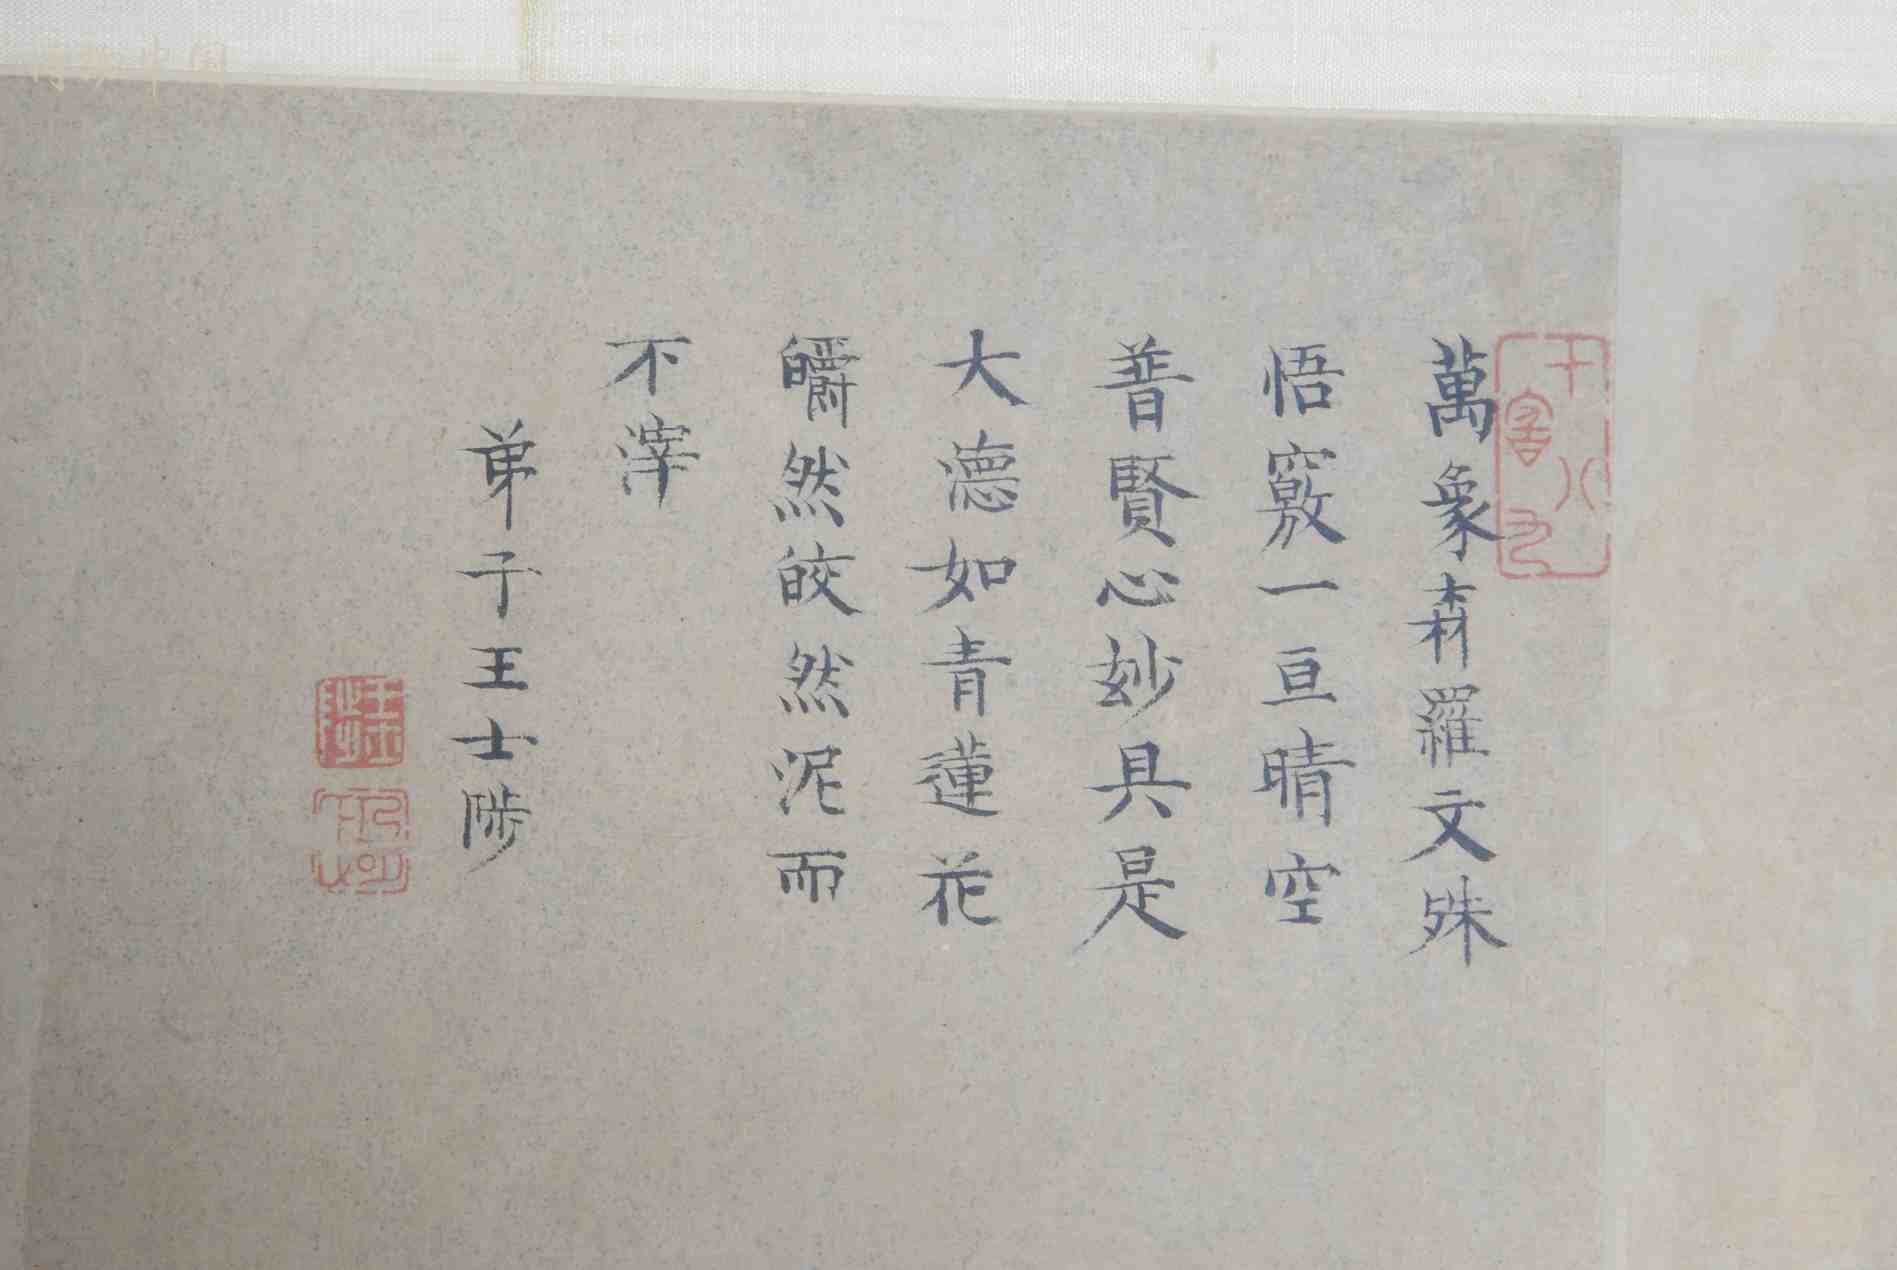 萬象森羅文殊
悟竅一亘晴空
普賢心妙具是
大德如青蓮花
皭然皎然泥而
不滓
弟子王士陟